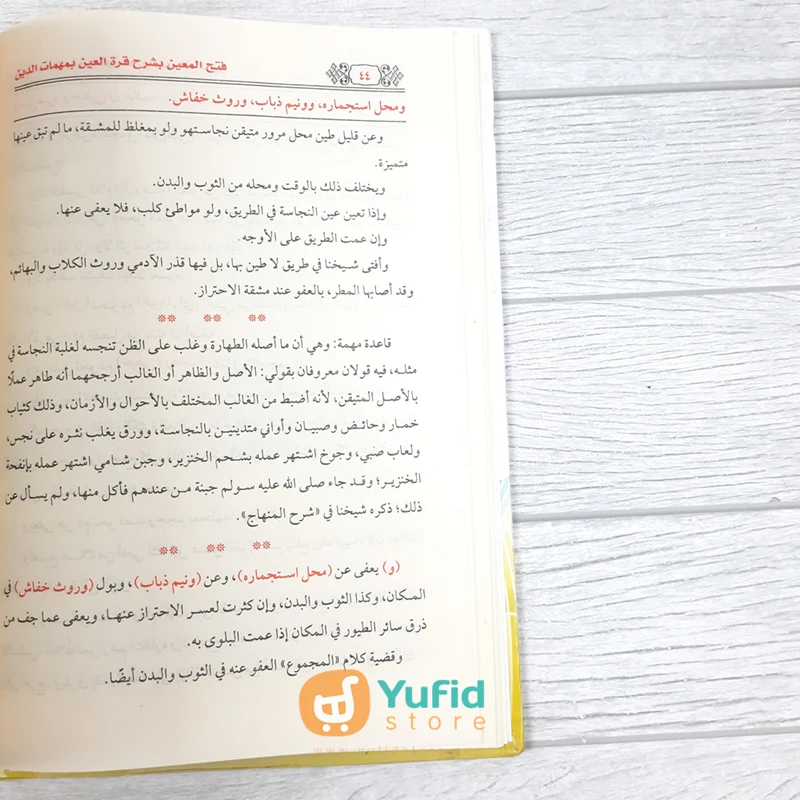 فتح المعين بشرح قرة العين بمهمات الدين
٤٤
ومحل استجماره، وونيم ذباب، وروث خفاش.
وعن قليل طين محل مرور متيقن نجاستهو ولو بمغلظ للمشقة، ما لم تبق عينها
متميزة.
ويختلف ذلك بالوقت ومحله من الثوب والبدن.
وإذا تعين عين النجاسة في الطريق، ولو مواطئ كلب، فلا يعفى عنها.
وإن عمت الطريق على الأوجه.
وأفتى شيخنا في طريق لا طين بها، بل فيها قذر الآدمي وروث الكلاب والبهائم،
وقد أصابها المطر، بالعفو عند مشقة الاحتراز.
قاعدة مهمة: وهي أن ما أصله الطهارة وغلب على الظن تنجسه لغلبة النجاسة في
مثله، فيه قولان معروفان بقولي: الأصل والظاهر أو الغالب أرجحهما أنه طاهر عملًا
بالأصل المتيقن، لأنه أضبط من الغالب المختلف بالأحوال والأزمان، وذلك كثياب
خمار وحائض وصبيان وأواني متدينين بالنجاسة، وورق يغلب نثره على نجس،
ولعاب صبي، وجوخ اشتهر عمله بشحم الخنزير، وجبن شامي اشتهر عمله بإنفحة
الخنزير؛ وقد جاء صلى الله عليه سولم جبنة من عندهم فأكل منها، ولم يسأل عن
ذلك؛ ذكره شيخنا في «شرح المنهاج».
(و) يعفى عن (محل استجماره)، وعن (ونيم ذباب)، وبول (وروث خفاش) في
المكان، وكذا الثوب والبدن، وإن كثرت لعسر الاحتراز عنها، ويعفى عما جف من
ذرق سائر الطيور في المكان إذا عمت البلوى به.
وقضية كلام «المجموع» العفو عنه في الثوب والبدن أيضًا.
Yufid
store